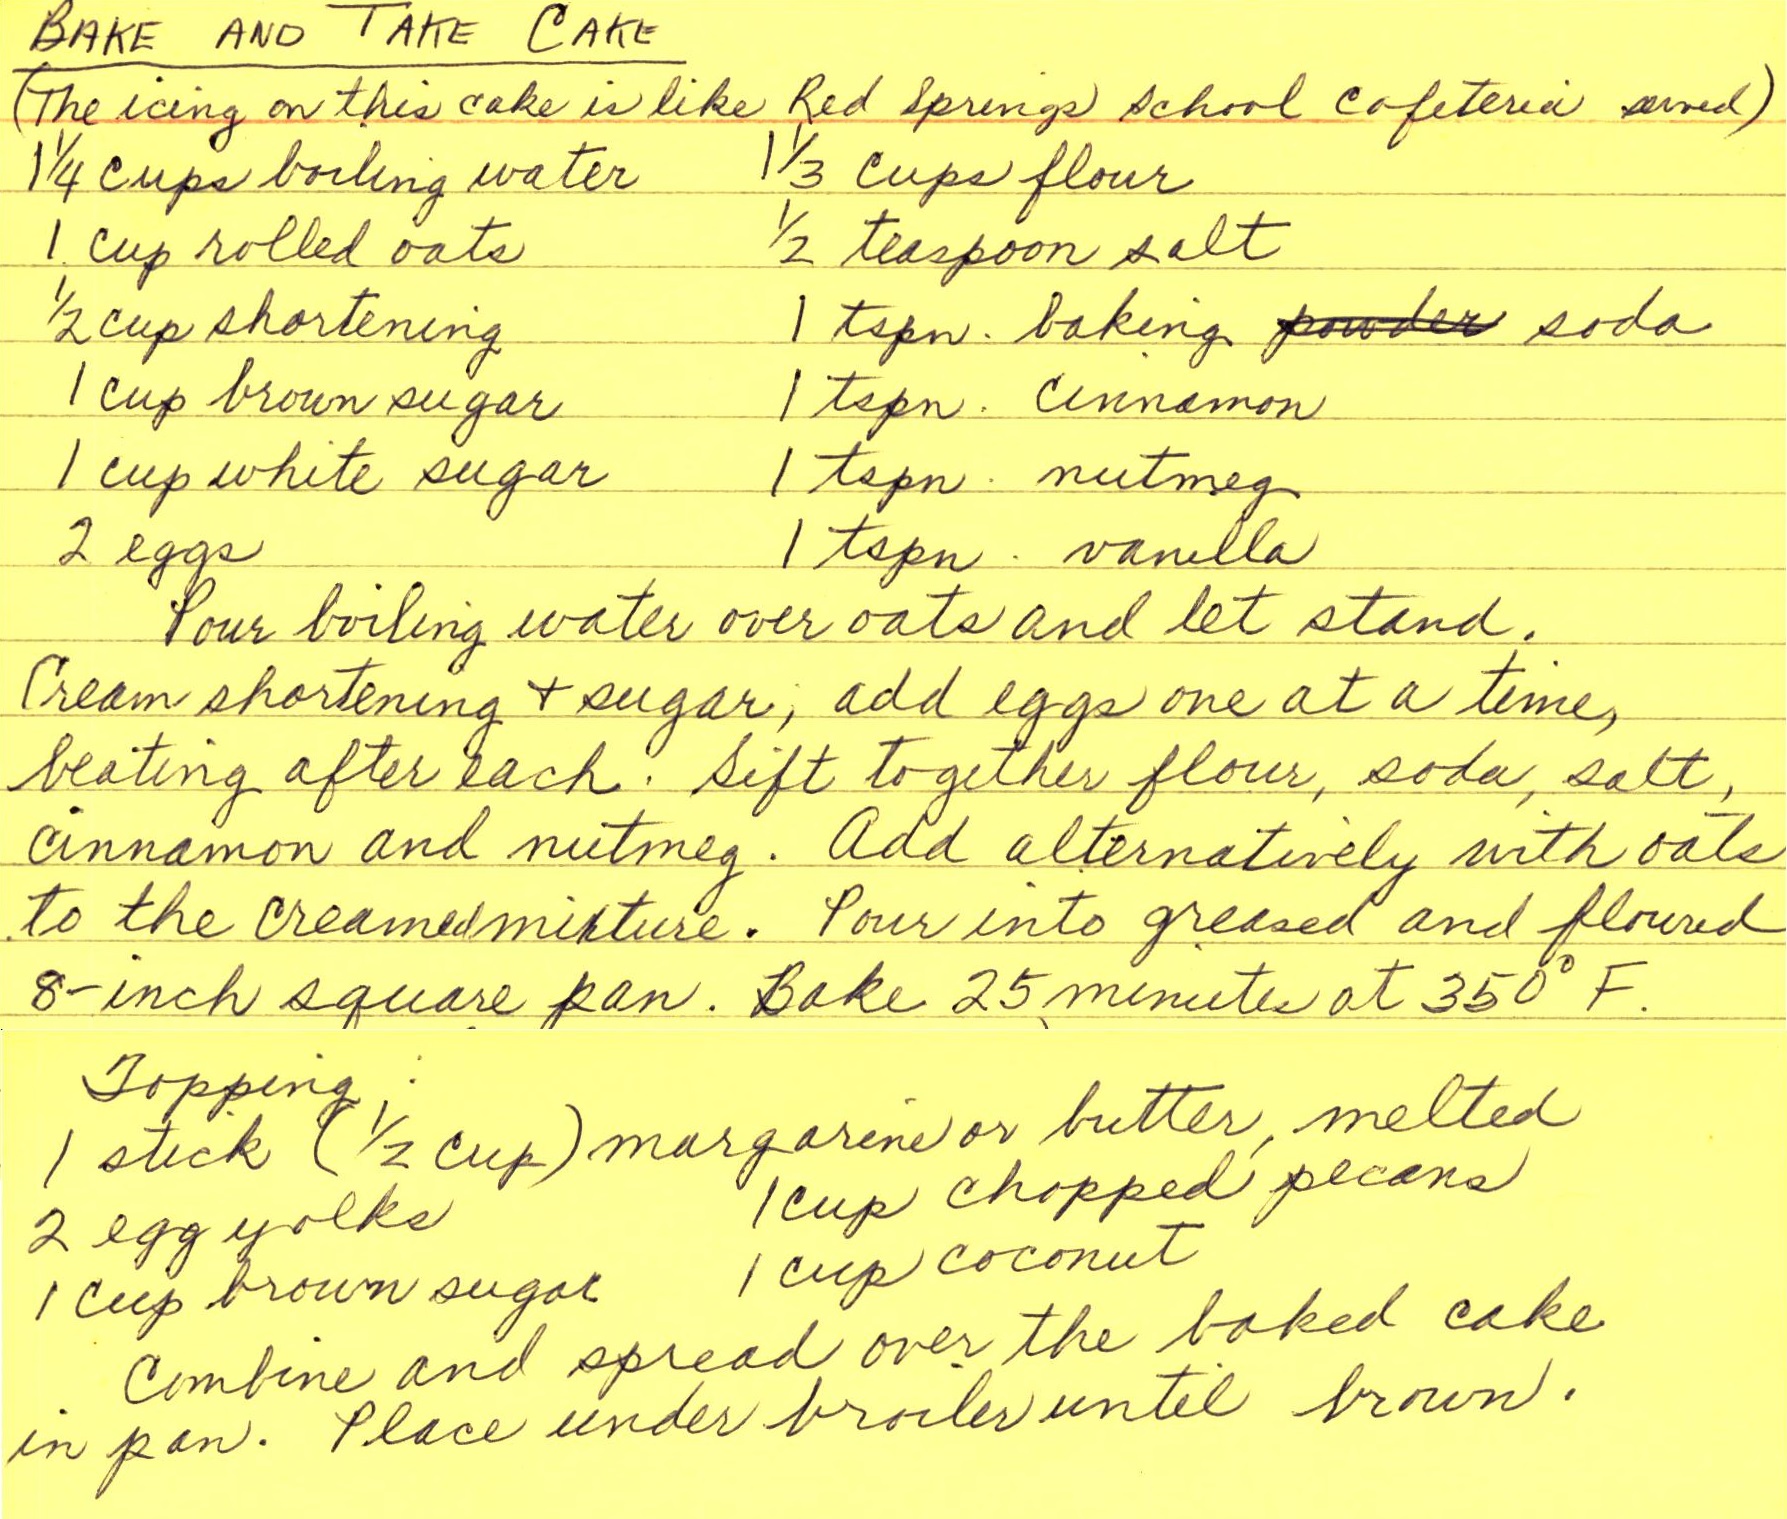 BAKE AND TAKE CAKE
(The icing on this cake is like Red Springs School Cafeteria served)
1 1/4 cups boiling water 1 1/3 cups flour
1 cup rolled oats 1/2 teaspoon salt
1/2 cup shortening 1 tspn. baking powder soda
1 cup brown sugar 1 tspn. cinnamon
1 cup white sugar 1 tspn. nutmeg
2 eggs 1 tspn. vanilla
Pour boiling water over oats and let stand.
Cream shortening + sugar; add eggs one at a time,
beating after each. Sift together flour, soda, salt,
cinnamon and nutmeg. Add alternatively with oats
to the creamed mixture. Pour into greased and floured
8-inch square pan. Bake 25 minutes at 350° F.
Topping:
1 stick (1/2 cup) margarine or butter, melted
2 egg yolks 1 cup chopped pecans
1 cup brown sugar 1 cup coconut
Combine and spread over the baked cake
in pan. Place under broiler until brown.